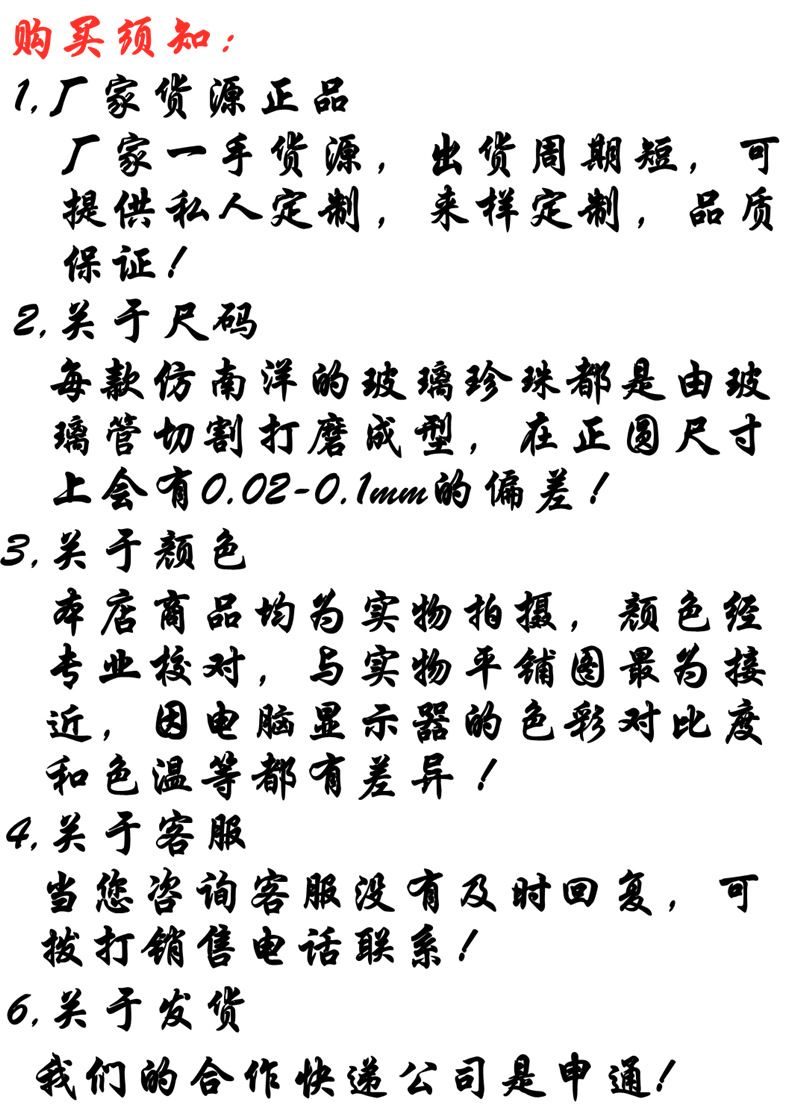 购买须知:
1,厂家货源正品
厂家一手货源，出货周期短，可
提供私人定制，来样定制，品质
保证!
2,关于尺码
每款仿南洋的玻璃珍珠都是由玻
璃管切割打磨成型，在正圆尺寸
上会有0.02-0.1mm的偏差!
3,关于颜色
本店商品均为实物拍摄，颜色经
专业校对，与实物平铺图最为接
近，因电脑显示器的色彩对比度
和色温等都有差异!
4,关于客服
当您咨询客服没有及时回复，可
拨打销售电话联系!
6,关于发货
我们的合作快递公司是申通!